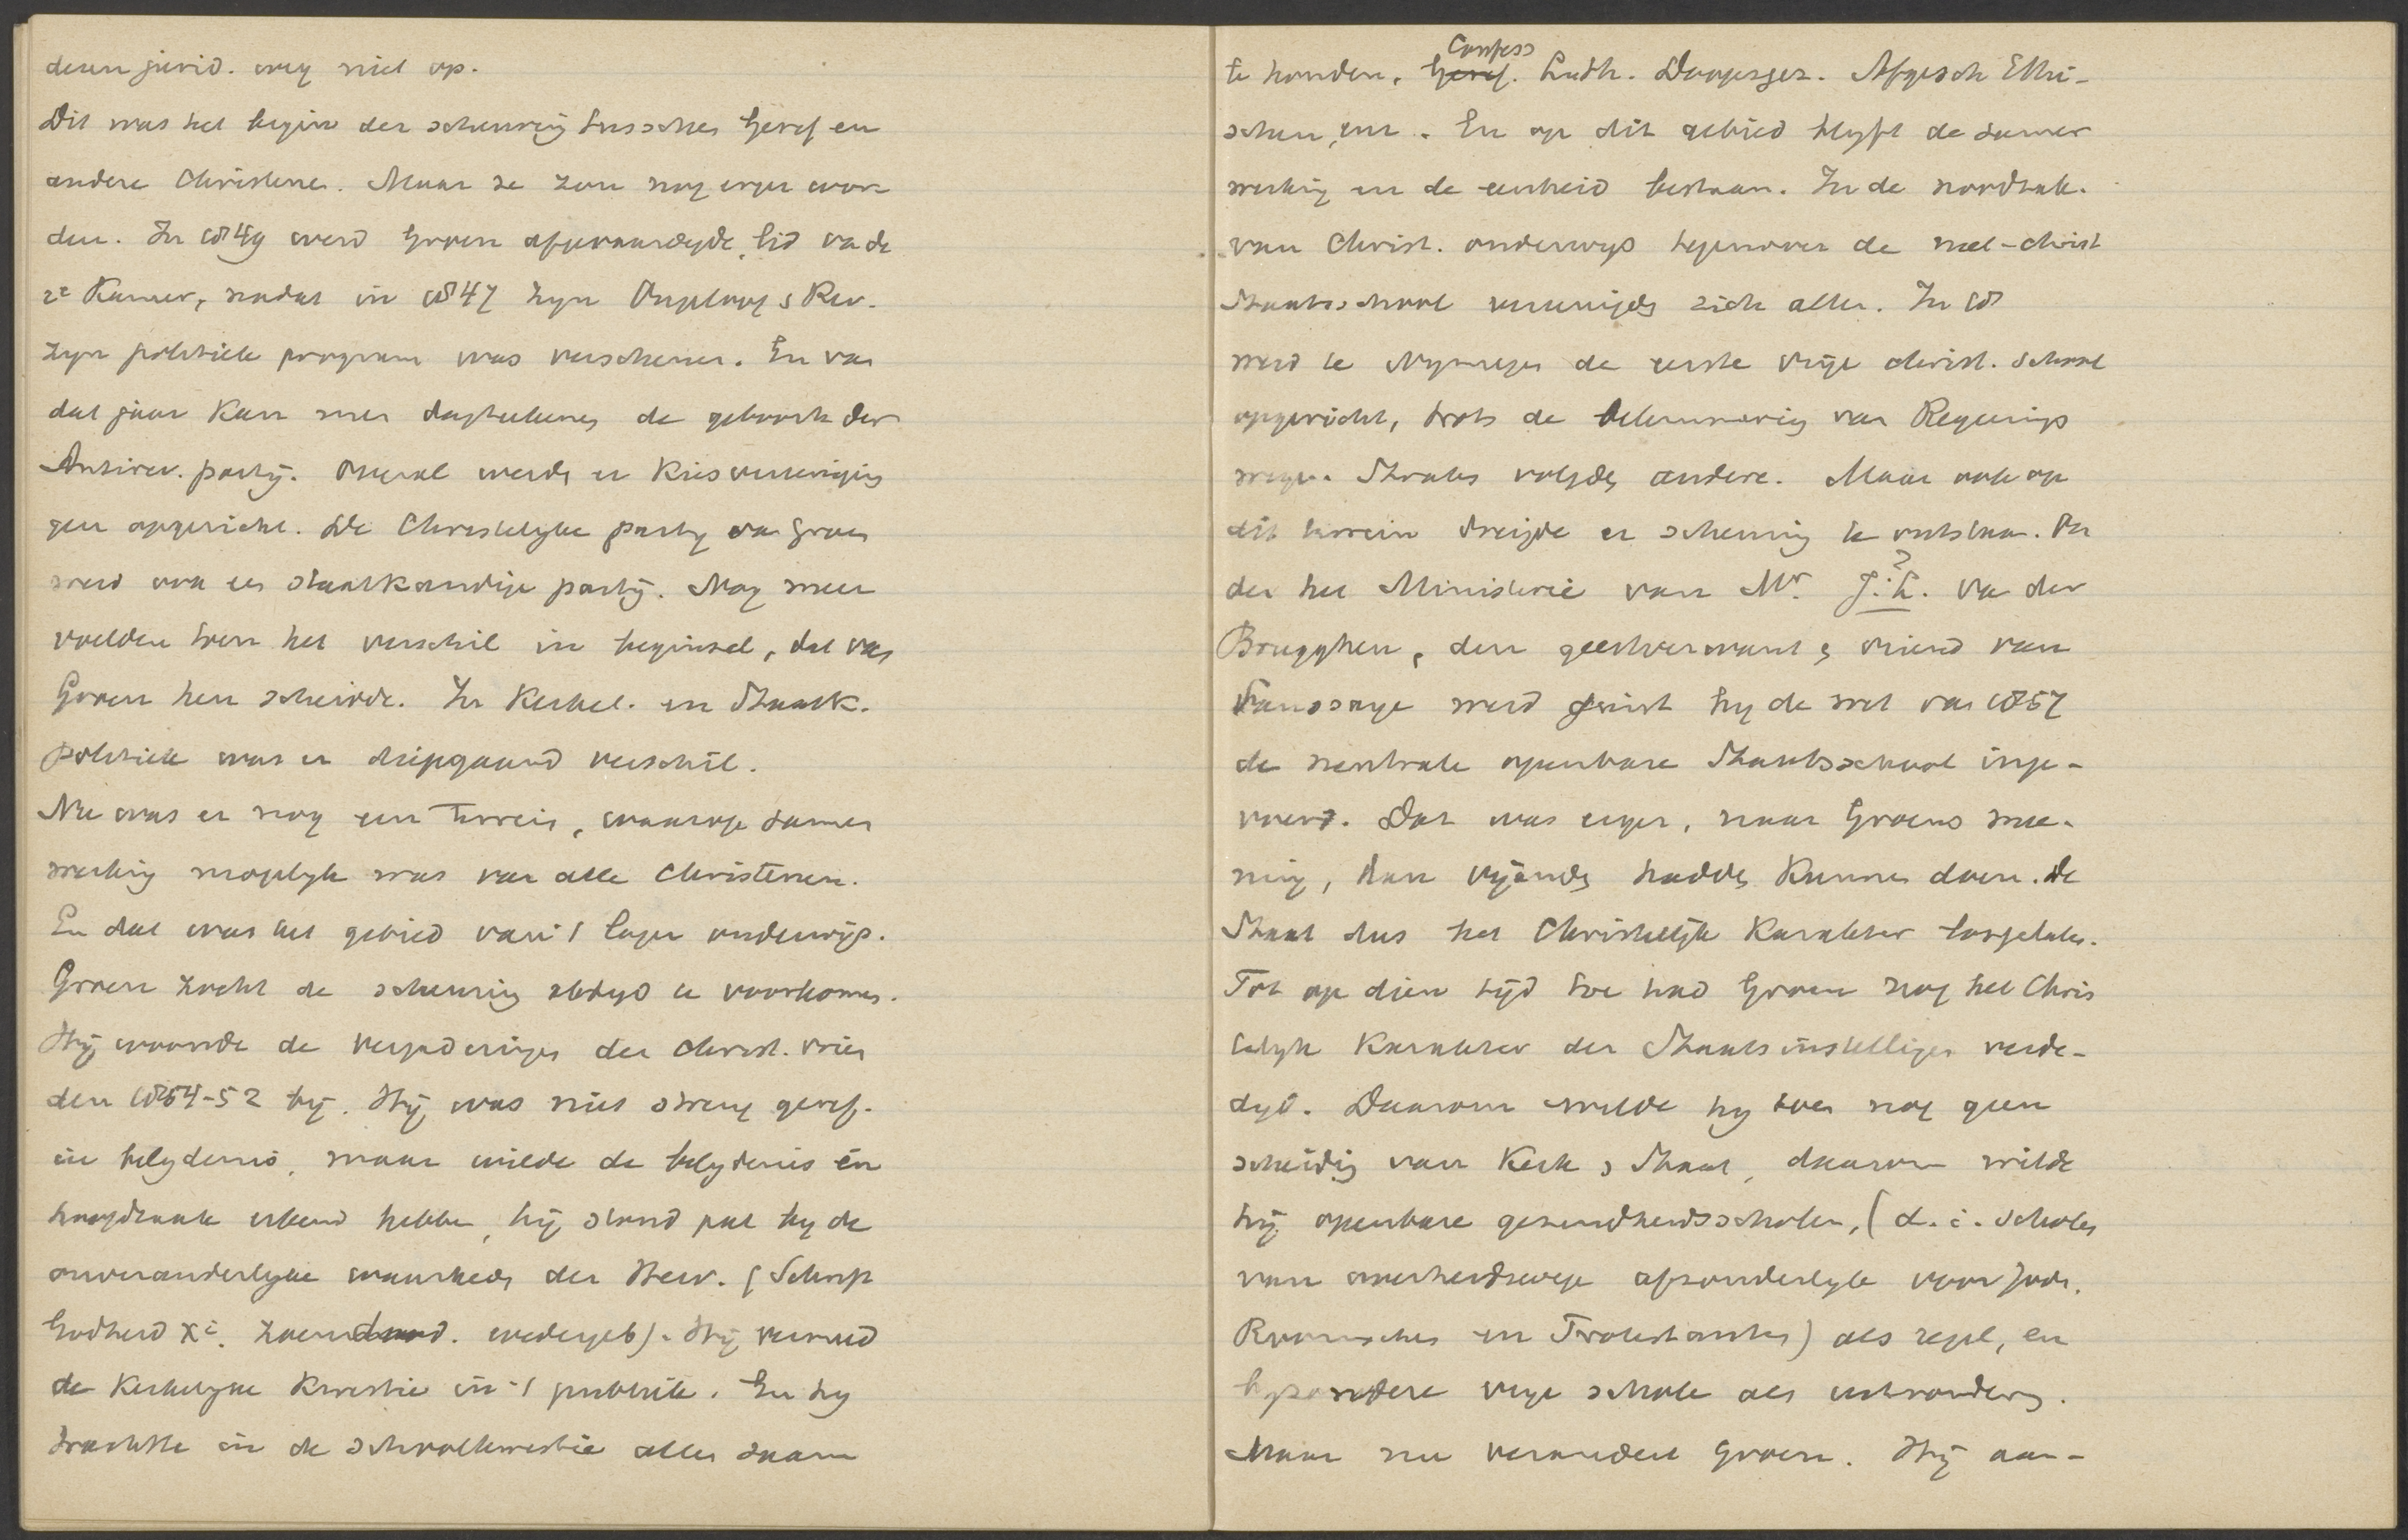 dezen jurid. weg niet op.
Dit was het begin der scheuring tusschen Geref en
andere Christenen. Maar ze zou nog erger wor
den. In 1849 werd Groen afgevaardigde, lid va de
2e Kamer, nadat in 1847 zijn Ongeloof & Rev.
zijn politiek program was verschenen. En van
dat jaar kan men dagteekenen de geboorte der
Antirev. partij. Overal werden er Kiesvereeniging
gen opgericht. De Christelijke partij van Groen
werd ook een staatkundige partij. Nog meer
voelden toen het verschil in beginsel, dat van
Groen hen scheidde. In Kerkel. en Staatk.
politiek was er diepgaand verschil.
Nu was er nog een terrein, waarop samen
werking mogelijk was van alle Christenen.
En dat was het gebied van 't lager onderwijs.
Groen zocht de scheuring altijd te voorkomen.
Hij woonde de vergaderingen der Christ. vrien
den 18 -52 bij. Hij was niet streng geref.
in belijdenis, maar wilde de belijdenis in
hoofdzaak erkend hebben, hij stond pal bij de
onveranderlijke waarheden der Herv. (Schrift
Godheid Xi. Zoendood. wedergeb). Hij vermeed
de Kerkelijke Kwestie in 't publiek. En hij
trachtte in de schoolkwestie allen saam
te houden, Confess
Geref. Luth. Doopsgez. Afgesch Ethi-
schen, enz. En op dit gebied blijft de samen
werking en de eenheid bestaan. In de noodzak.
van Christ. onderwijs tegenover de niet-christ
Staatsschool vereenigden zich allen. In 18
werd te Nymegen de eerste vrije christ. school
opgericht, trots de belemmering van Regeerings
wege. Straks volgden andere. Maar ook op
dit terrein dreigde er scheuring te ontstaan. On
der het Ministerie van Mr. J.?L. va der
Brugghen, den geestverwant & vriend van
Saussaye werd juist bij de wet van 1857
de neutrale openbare Staatsschool inge-
voerd. Dat was erger, naar Groens mee-
ning, dan vijanden hadden kunnen doen. De
Staat dus het Christelijk Karakter losgelaten.
Tot op dien tijd toe had Groen nog het Chris
telijk Karakter der Staatsinstellingen verde-
digd. Daarom wilde hij toen nog geen
scheiding van Kerk & Staat, daarom wilde
hij openbare gezindheidsscholen, (d. i. scholen
van overheidswege afzonderlijk voor Joden.
Roomschen en Protestanten) als regel, en
bijzondere vrije schole als uitzondering.
Maar nu verandert Groen. Hij aan-